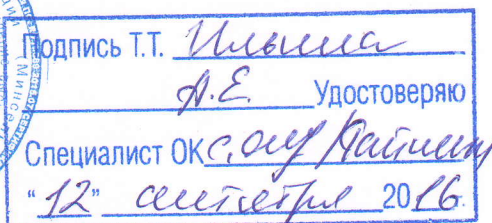 Подпись Т.Т. Ильина
А.Е. Удостоверяю
Специалист ОК
"12" сентября 2016